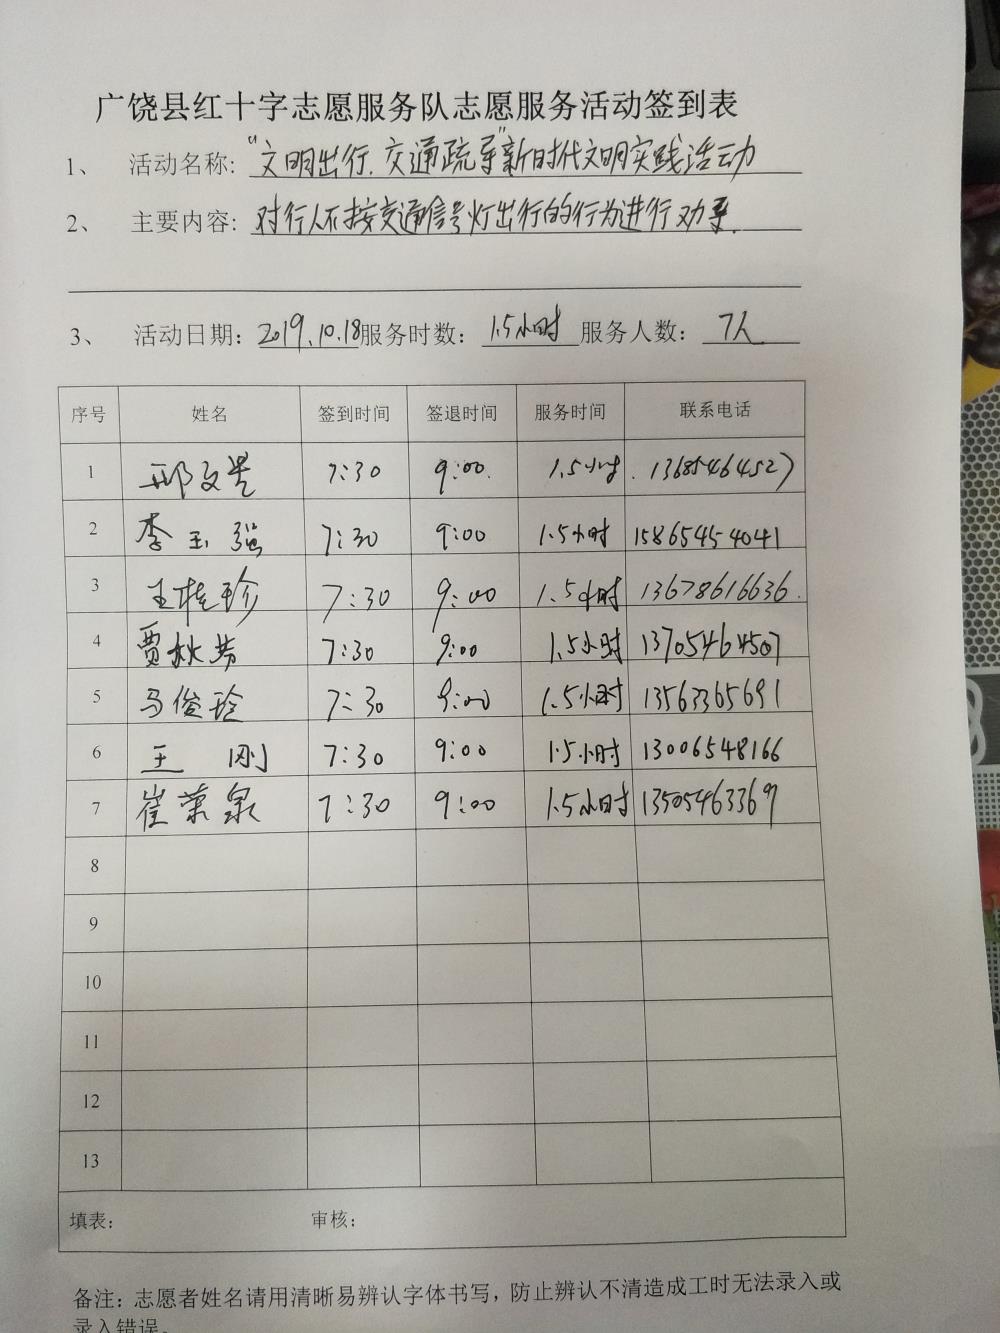 广饶县红十字志愿服务队志愿服务活动签到表
1、 活动名称: "文明出行.交通疏导"新时代文明实践活动
2、 主要内容: 对行人不按交通信号灯出行的行为进行劝导.
3、 活动日期: 2019.10.18 服务时数: 1.5小时 服务人数: 7人
序号 姓名 签到时间 签退时间 服务时间 联系电话
1 邢文 7:30 9:00 1.5小时 13685464527
2 李玉强 7:30 9:00 1.5小时 15865454041
3 王桂珍 7:30 9:00 1.5小时 13678616636
4 贾秋芳 7:30 9:00 1.5小时 13705464507
5 马俊玲 7:30 9:00 1.5小时 13563365691
6 王刚 7:30 9:00 1.5小时 13006548166
7 崔荣泉 7:30 9:00 1.5小时 13505463369
8
9
10
11
12
13
填表: 审核:
备注: 志愿者姓名请用清晰易辨认字体书写，防止辨认不清造成工时无法录入或
录入错误。